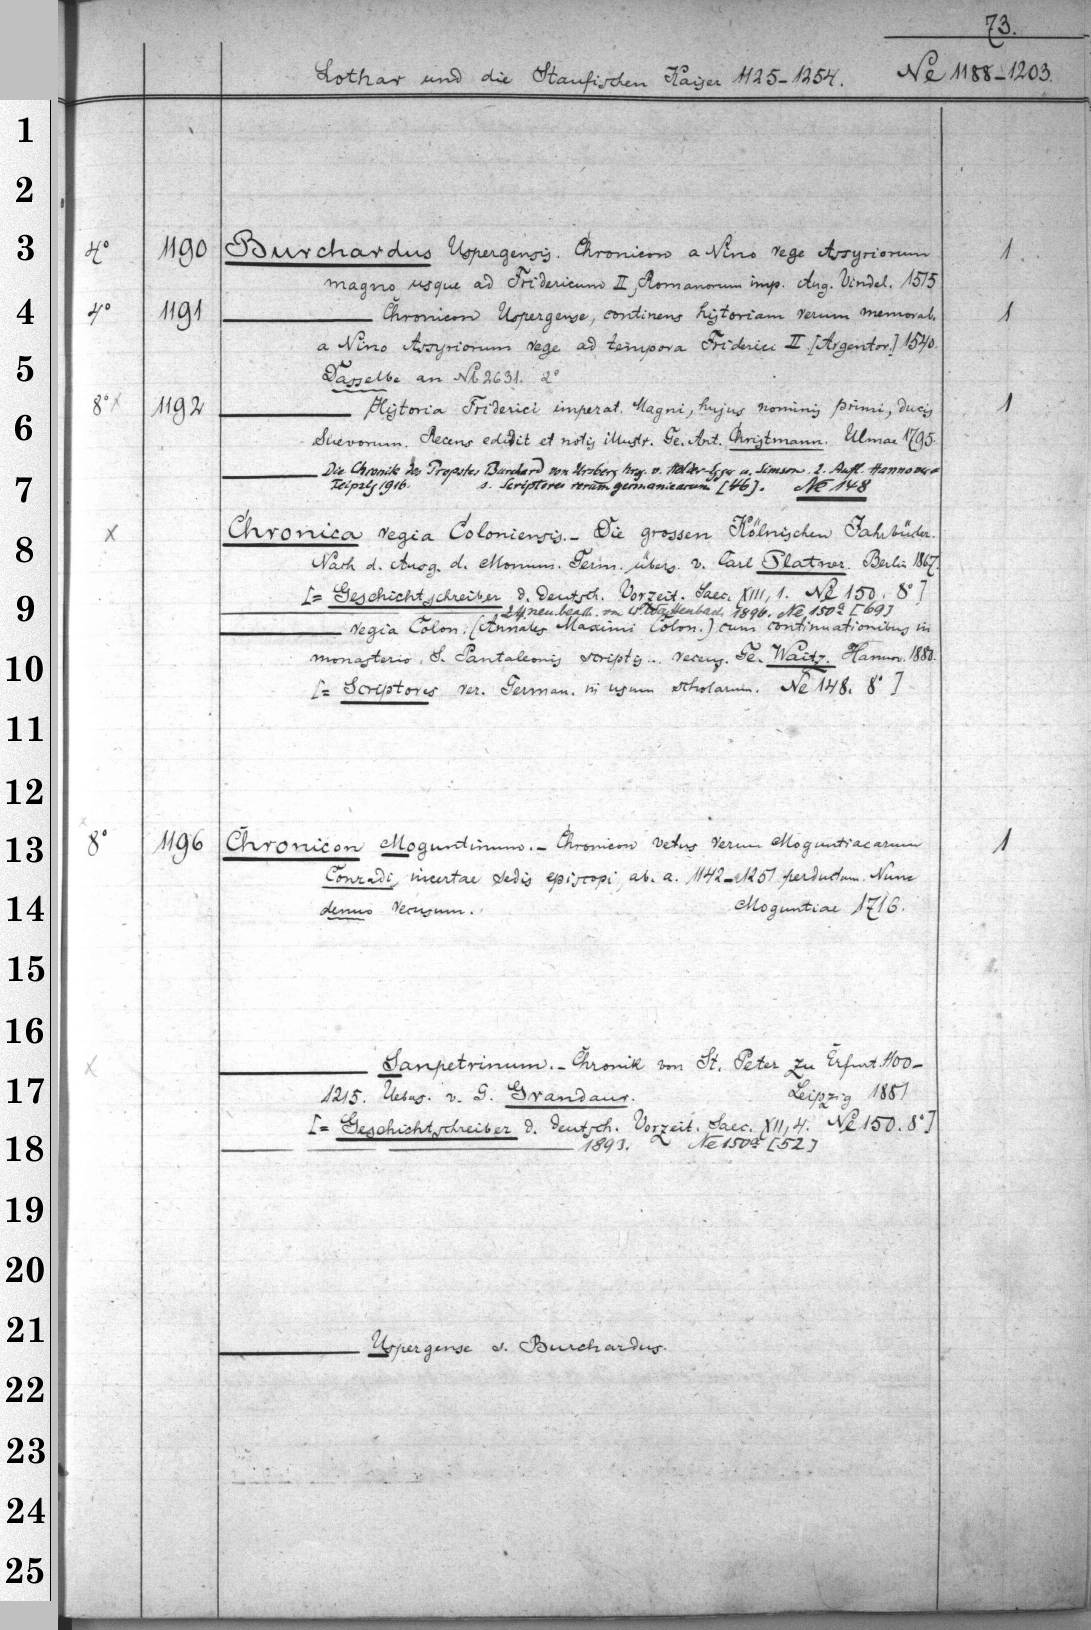 73.
Lothar und die Staufischen Kaiser 1125-1254. Ne 1188-1203.
1
2
3 4° 1190 Burchardus Uspergensis. Chronicon a Nino rege Assyriorum 1
magno usque ad Fridericum II, Romanorum imp. Aug. Vindel. 1515
4 4° 1191 Chronicon Uspergense, continens historiam rerum memorab. 1
a Nino Assyriorum rege ad tempora Friderici II. [Argentor.] 1540.
5 Dasselbe an Ne 2631. 2°
8° x 1192 Historia Friderici imperat. Magni, hujus nominis primi, ducis 1
6 Suevorum. Recens edidit et notis illustr. Ge. Ant. Christmann. Ulmae 1795.
Die Chronik des Propstes Burchard von Ursberg hrg. v. Holder-Egger u. Simson. 2. Aufl. Hannover=
7 Leipzig 1916. s. Scriptores rerum germanicarum [46]. Ne 148
x Chronica regia Coloniensis. - Die grossen Kölnischen Jahrbücher.
8 Nach d. Ausg. d. Monum. Germ. übers. v. Carl Platner. Berlin 1867.
[= Geschichtschreiber d. deutsch. Vorzeit. Saec. XIII, 1. Ne 150. 8°]
9 2. Aufl. neu bearb. von W. Wattenbach 1896. Ne 150a [69]
regia Colon. (Annales Maximi Colon.) cum continuationibus in
10 monasterio S. Pantaleonis scriptis.. recens. Ge. Waitz. Hannov. 1880.
[= Scriptores rer. German. in usum scholarum. Ne 148. 8°]
11
12
13 8° 1196 Chronicon Moguntinum. - Chronicon vetus rerum Moguntiacarum 1
Conradi, incertae sedis episcopi, ab. a. 1142-1251 perductum. Nunc
14 denuo recusum. Moguntiae 1716.
15
16
x Sanpetrinum. - Chronik von St. Peter zu Erfurt. 1100-
17 1215. Uebers. v. G. Grandaur. Leipzig 1881
[= Geschichtschreiber d. deutsch. Vorzeit. Saec. XII, 4. Ne 150. 8°]
18 1893. Ne 150a [52]
19
20
21 Uspergense s. Burchardus.
22
23
24
25